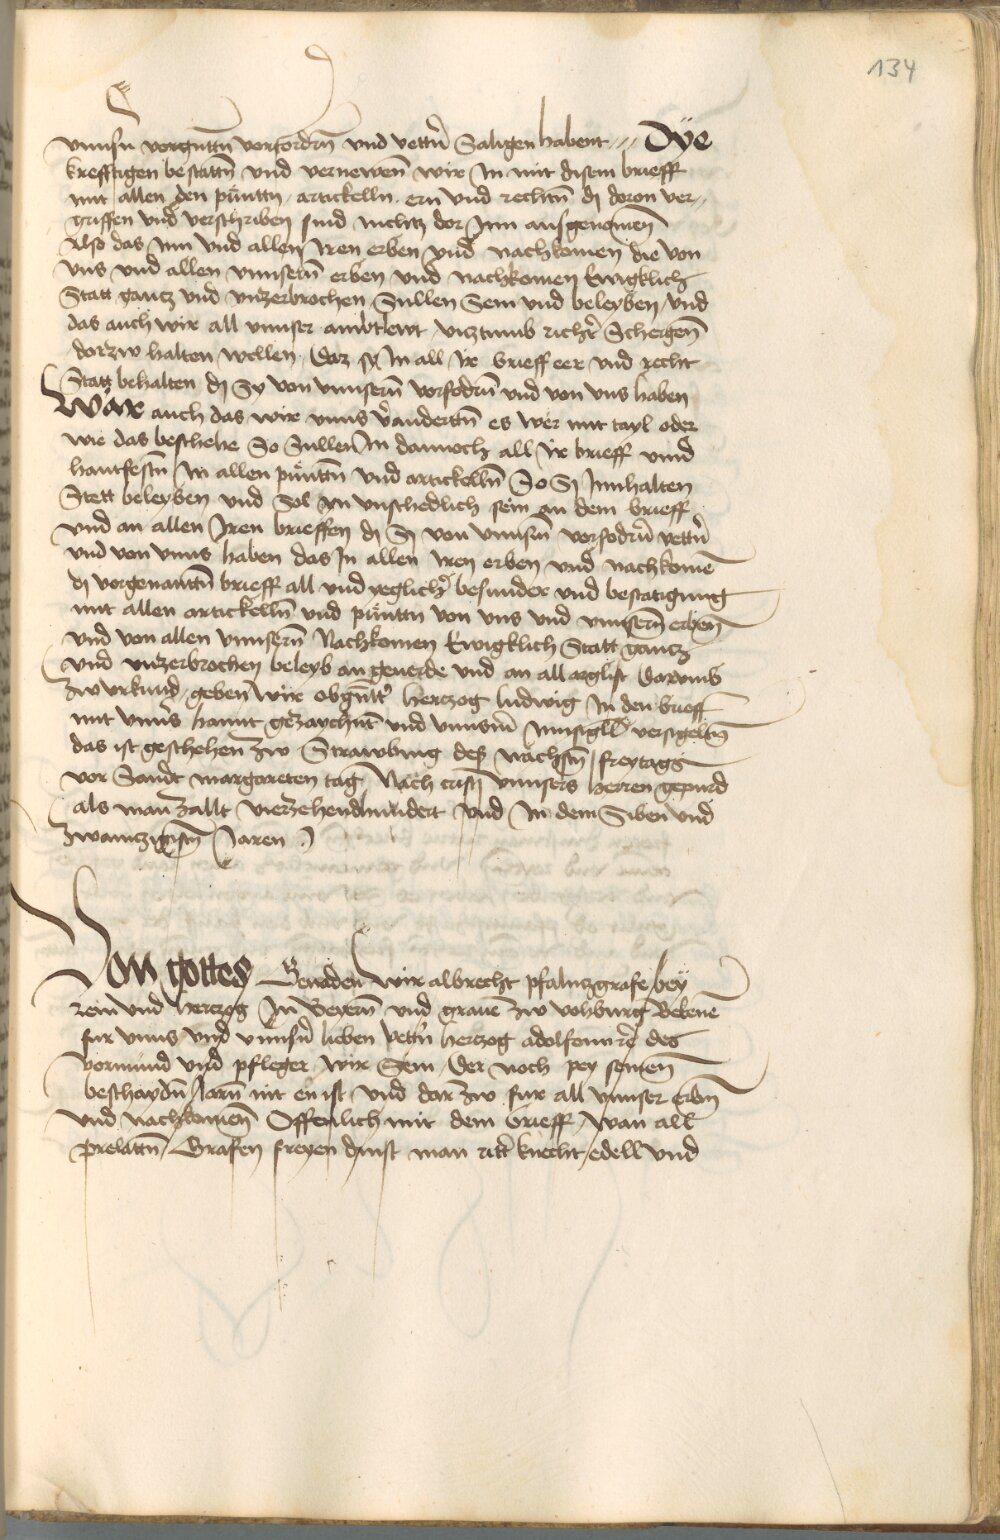 134
vnnsrn vorgnttn vorfordrn vnd vettern Saligen habent // Dye
krefftigen bestattn vnd vernewen wir In mit disem brieff
mit allen den pünttn artickelln ern vnd rechten dy doron ver//
griffen vnd verschriben sind nichtz dor Inn ausgenomen
Also das inn vnd allen Iren erben vnd nachkomen die von
vns vnd allen vnnsern erben vnd nachkomen Ewigklich
Statt gantz vnd vnzerbrochen Sullen Sein vnd beleyben vnd
das auch wir all vnnser ambtlewt viztumb richtr Schergen
dorzw halten wellen Daz sy In all Ir brieff eer vnd recht
Statt behalten dy Sy von vnnsern vorfodrn vnd von vns haben
Wär auch das wir vnns verandertn es wer mit tayl oder
wie das beschehe So Sullen In dannoch all Ir brieff vnnd
hantfestn In allen pünttn vnd artickelln So Sy Innhalten
Stett beleyben vnd Sol In vnschedlich sein an dem brieff
vnd an allen Iren brieffen dy Sy von vnnsrn vorfodrn vettrn
vnd von vnns haben das In allen Iren erben vnd nachkomen
dy vorgenanttn brieff all vnd yeglichr besunder vnd bestatigung
mit allen artickelln vnd pünttn von vns vnd vnnsern erben
vnd von allen vnnsern Nachkomen Ewigklich Statt gantz
vnd vnzerbrochen beleyb an geuerde vnd an all arglist Darvmb
zw vrkund geben wir obgntr hertzog ludwig In den brieff
mit vnnsrs hannt gezaychntt vnd vnnsrm Innsigll versigeltn
das ist geschehen zw Strawbing des nächstn freytags
vor Sandt margareten tag Nach cristi vnnsers herren gepurd
als man zallt vierzehendhundert vnd In dem Siben vnd
zwaintzigistn Jaren
Von gottes Genaden wir albrecht pfalntzgrafe bey
rein vnd hertzog In Beyern vnd graue zw vohburg Bekenn
fur vnns vnd vnnsrn lieben vettrn hertzog adolfenn des
vormund vnd pfleger wir Sein Der noch pey seinen
beschaydn Jarn nit en ist vnd dar zw fur all vnnser erbn
vnd nachkomen Offenlich mit dem brieff Wan all
prelattn Grafen freyen dinst man rittr knecht edell vnd